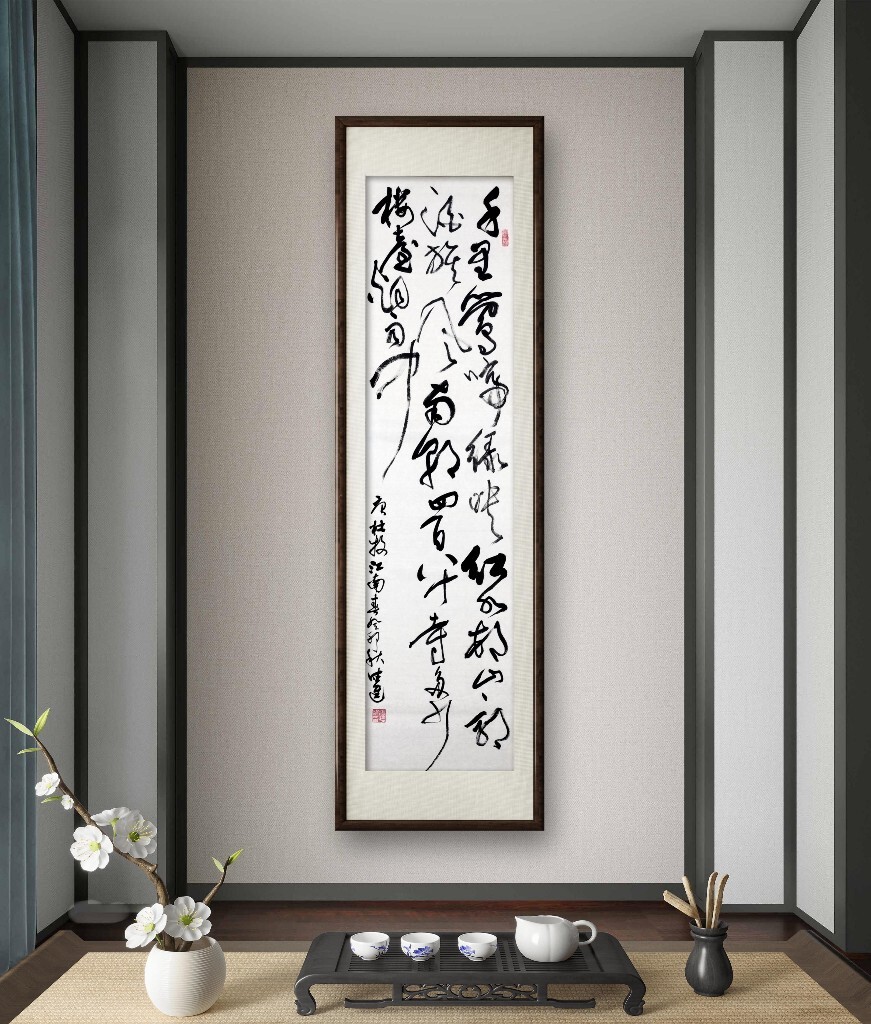 千里鶯啼綠映紅水村山郭
酒旗風南朝四百八十寺多少
楼臺烟雨中
唐杜牧江南春癸卯秋